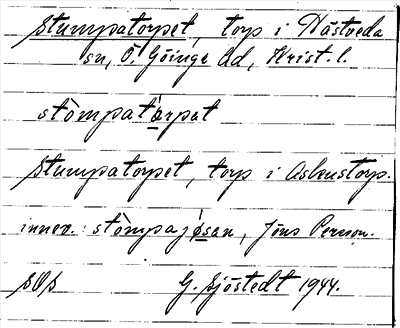 Stumpatorpet, torp i Nästveda
sn, Ö. Göinge hd, Krist. l.
stòmpatårpat
Stumpatorpet, torp i Askustorp.
innev.: stòmpajǿsan, Jöns Persson.
SOS G. Sjöstedt 1944.